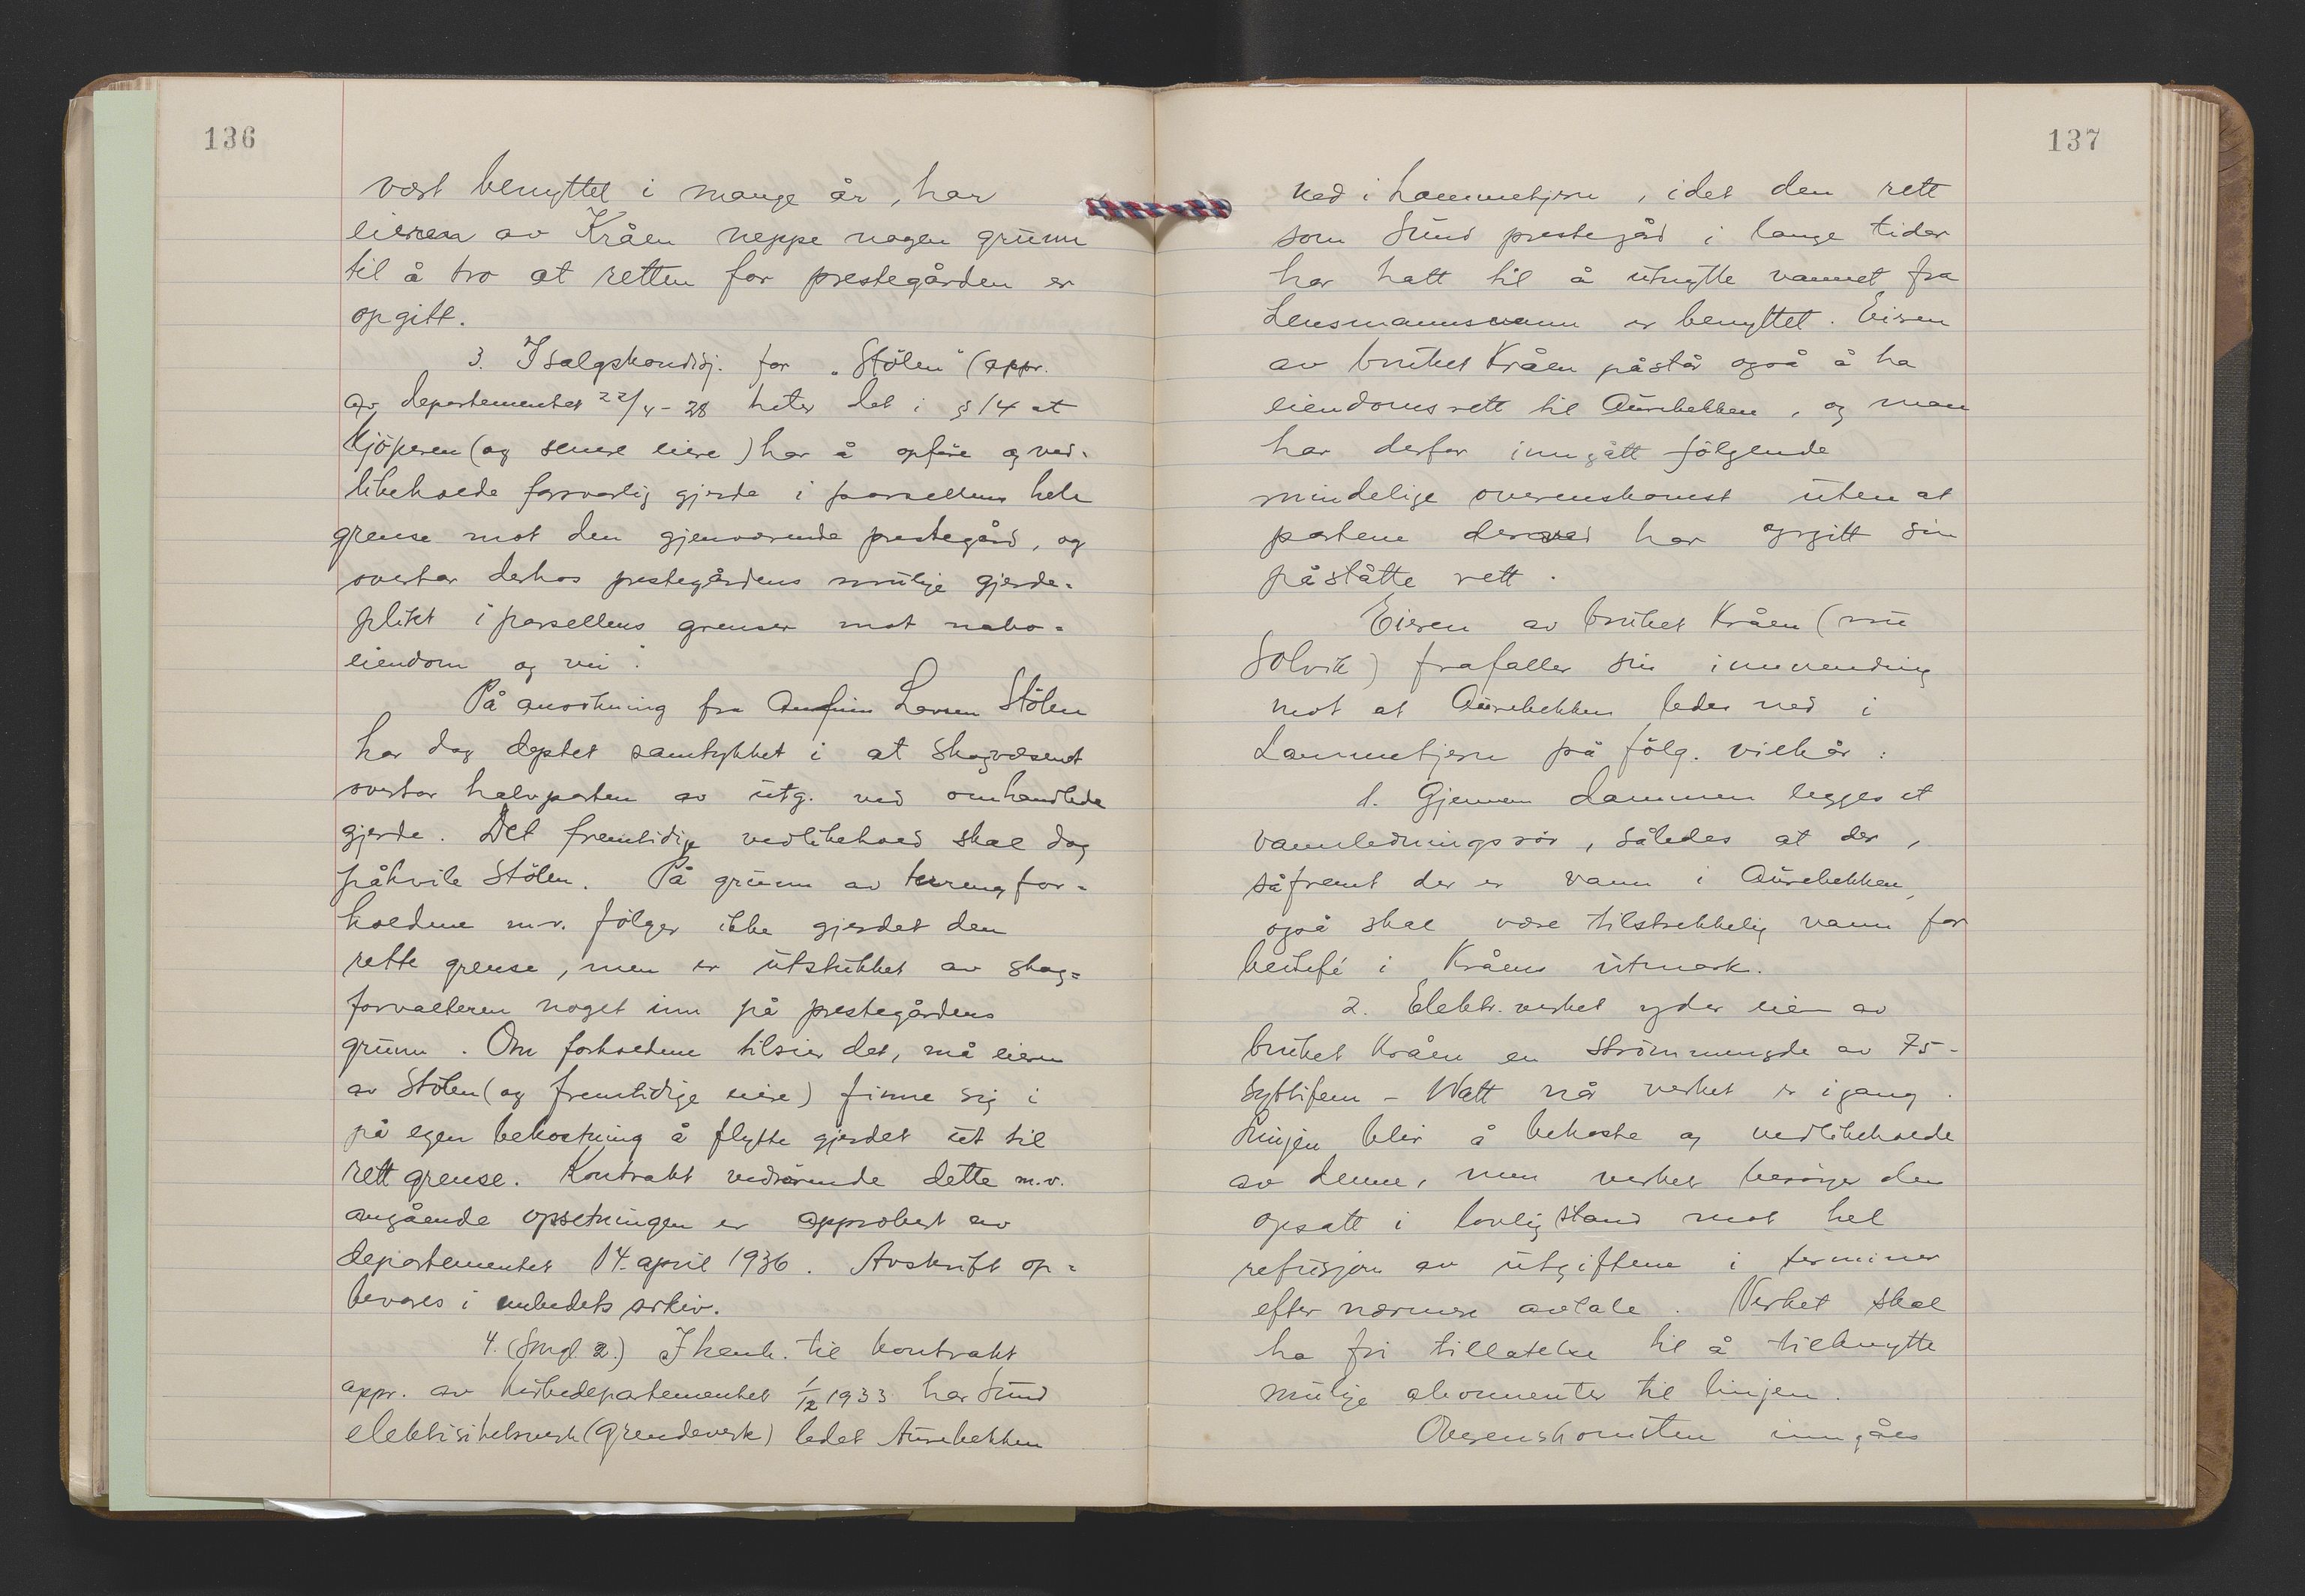 136
vært benyttet i mange år, har
eieren av Kråen neppe nogen grunn
til å tro at retten for prestegården er
opgitt.
3. I salgskondisj. for "Stölen" (appr.
av departementet 22/4-28 heter det i § 14 at
Kjöperen (og senere eiere) har å opföre og ved-
likeholde forsvarlig gjerde i parsellens hele
grense mot den gjenværende prestegård, og
overtar derhos prestegårdens mulige gjerde-
plikt i parsellens grenser mot nabo-
eiendom og vei".
På ansökning fra Larsen Stölen
har dog deptet samtykket i at skogvesenet
overtar halvparten av utg. ved omhandlede
gjerde. Det fremtidige vedlikehold skal dog
påhvile Stölen. På grunn av terrengfor-
holdene m.v. fölger ikke gjerdet den
rette grense, men er utstukket av skog-
forvalteren noget inn på prestegårdens
grunn. Om forholdene tilsier det, må eieren
av Stölen (og fremtidige eiere) finne sig i
på egen bekostning å flytte gjerdet ut til
rett grense. Kontrakt vedrörende dette m.v.
angående opsetningen er approbert av
departementet 14. april 1936. Avskrift op-
bevares i embedets arkiv.
4. (Smgl. 2.) I henh. til kontrakt
appr. av Kirkedepartementet 1/12 1933 har Sund
elektrisitetsverk (grendeverk) ledet Aurebekken
137
ned i Lammetjern, idet den rett
som Sund prestegård i lange tider
har hatt til å utnytte vannet fra
Lensmannsvann er benyttet. Eieren
av bruket Kråen påstår også å ha
eiendomsrett til Aurebekken, og man
har derfor inngått fölgende
mindelige overenskomst uten at
partene derved har opgitt sin
påståtte rett.
Eieren av bruket Kråen (nu
Solvik) frafaller sin innvending
mot at Aurebekken ledes ned i
Lammetjern på fölg. vilkår:
1. Gjennem dammen legges et
vannledningsrör, således at der,
såfremt der er vann i Aurebekken,
også skal være tilstrekkelig vann for
beitefé i Kråens utmark.
2. Elektr. verket yder eieren av
bruket Kråen en strömmengde av 75-
syttifem - Watt når verket er igang.
Linjen blir å bekoste og vedlikeholde
av denne, men verket besörger den
opsatt i lovlig stand mot hel
refusjon av utgiftene i terminer
efter nærmere avtale. Verket skal
ha fri tillatelse til å tilknytte
mulige abonnenter til linjen.
Overenskomsten inngåes